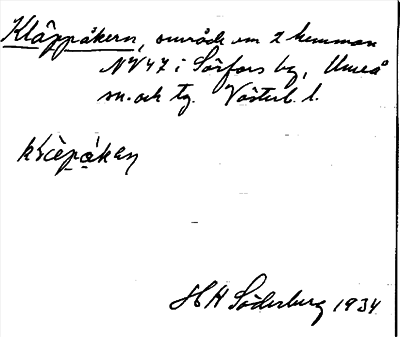 Kläppåkern, område om 2 hemman
N:o 4 7 i Sörfors by, Umeå
sn. och tg. Västerb. l.
H H Söderberg 1934